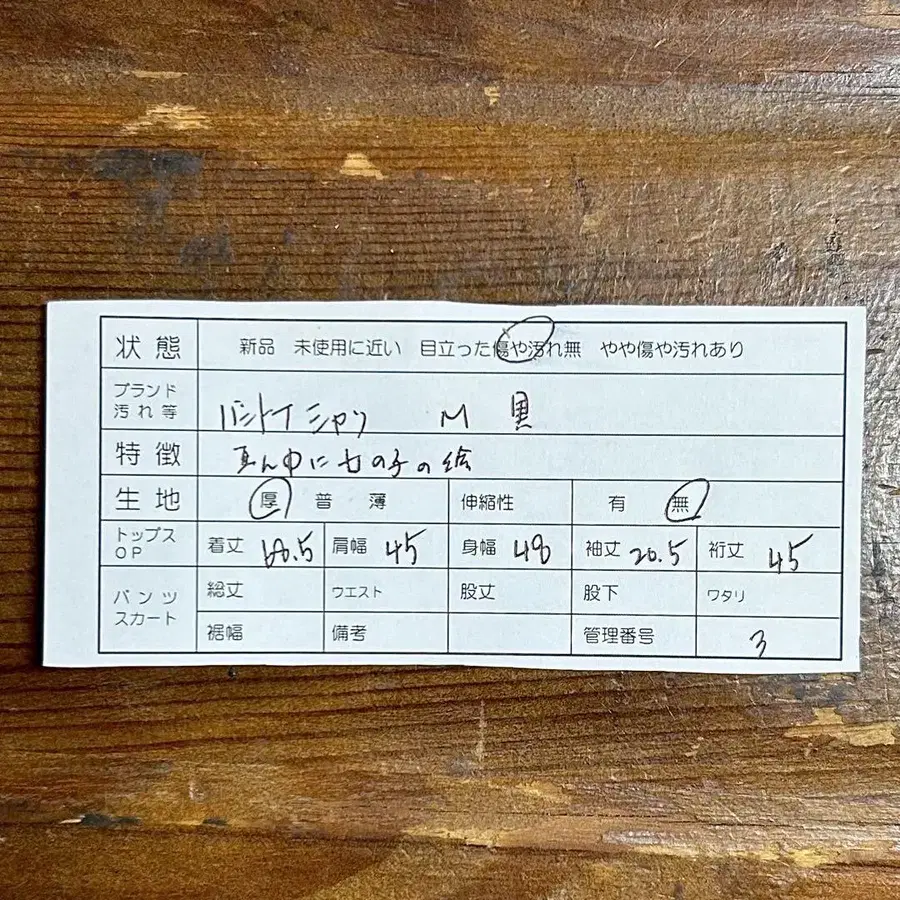 状態 新品 未使用に近い 目立った傷や汚れ無 やや傷や汚れあり
ブランド
汚れ等 バンドTシャツ M 黒
特徴 真ん中に女の子の絵
生地 厚 普 薄 伸縮性 有 無
トップス
OP 着丈 68.5 肩幅 45 身幅 48 袖丈 20.5 裄丈 45
パンツ
スカート 総丈 ウエスト 股丈 股下 ワタリ
裾幅 備考 管理番号 3